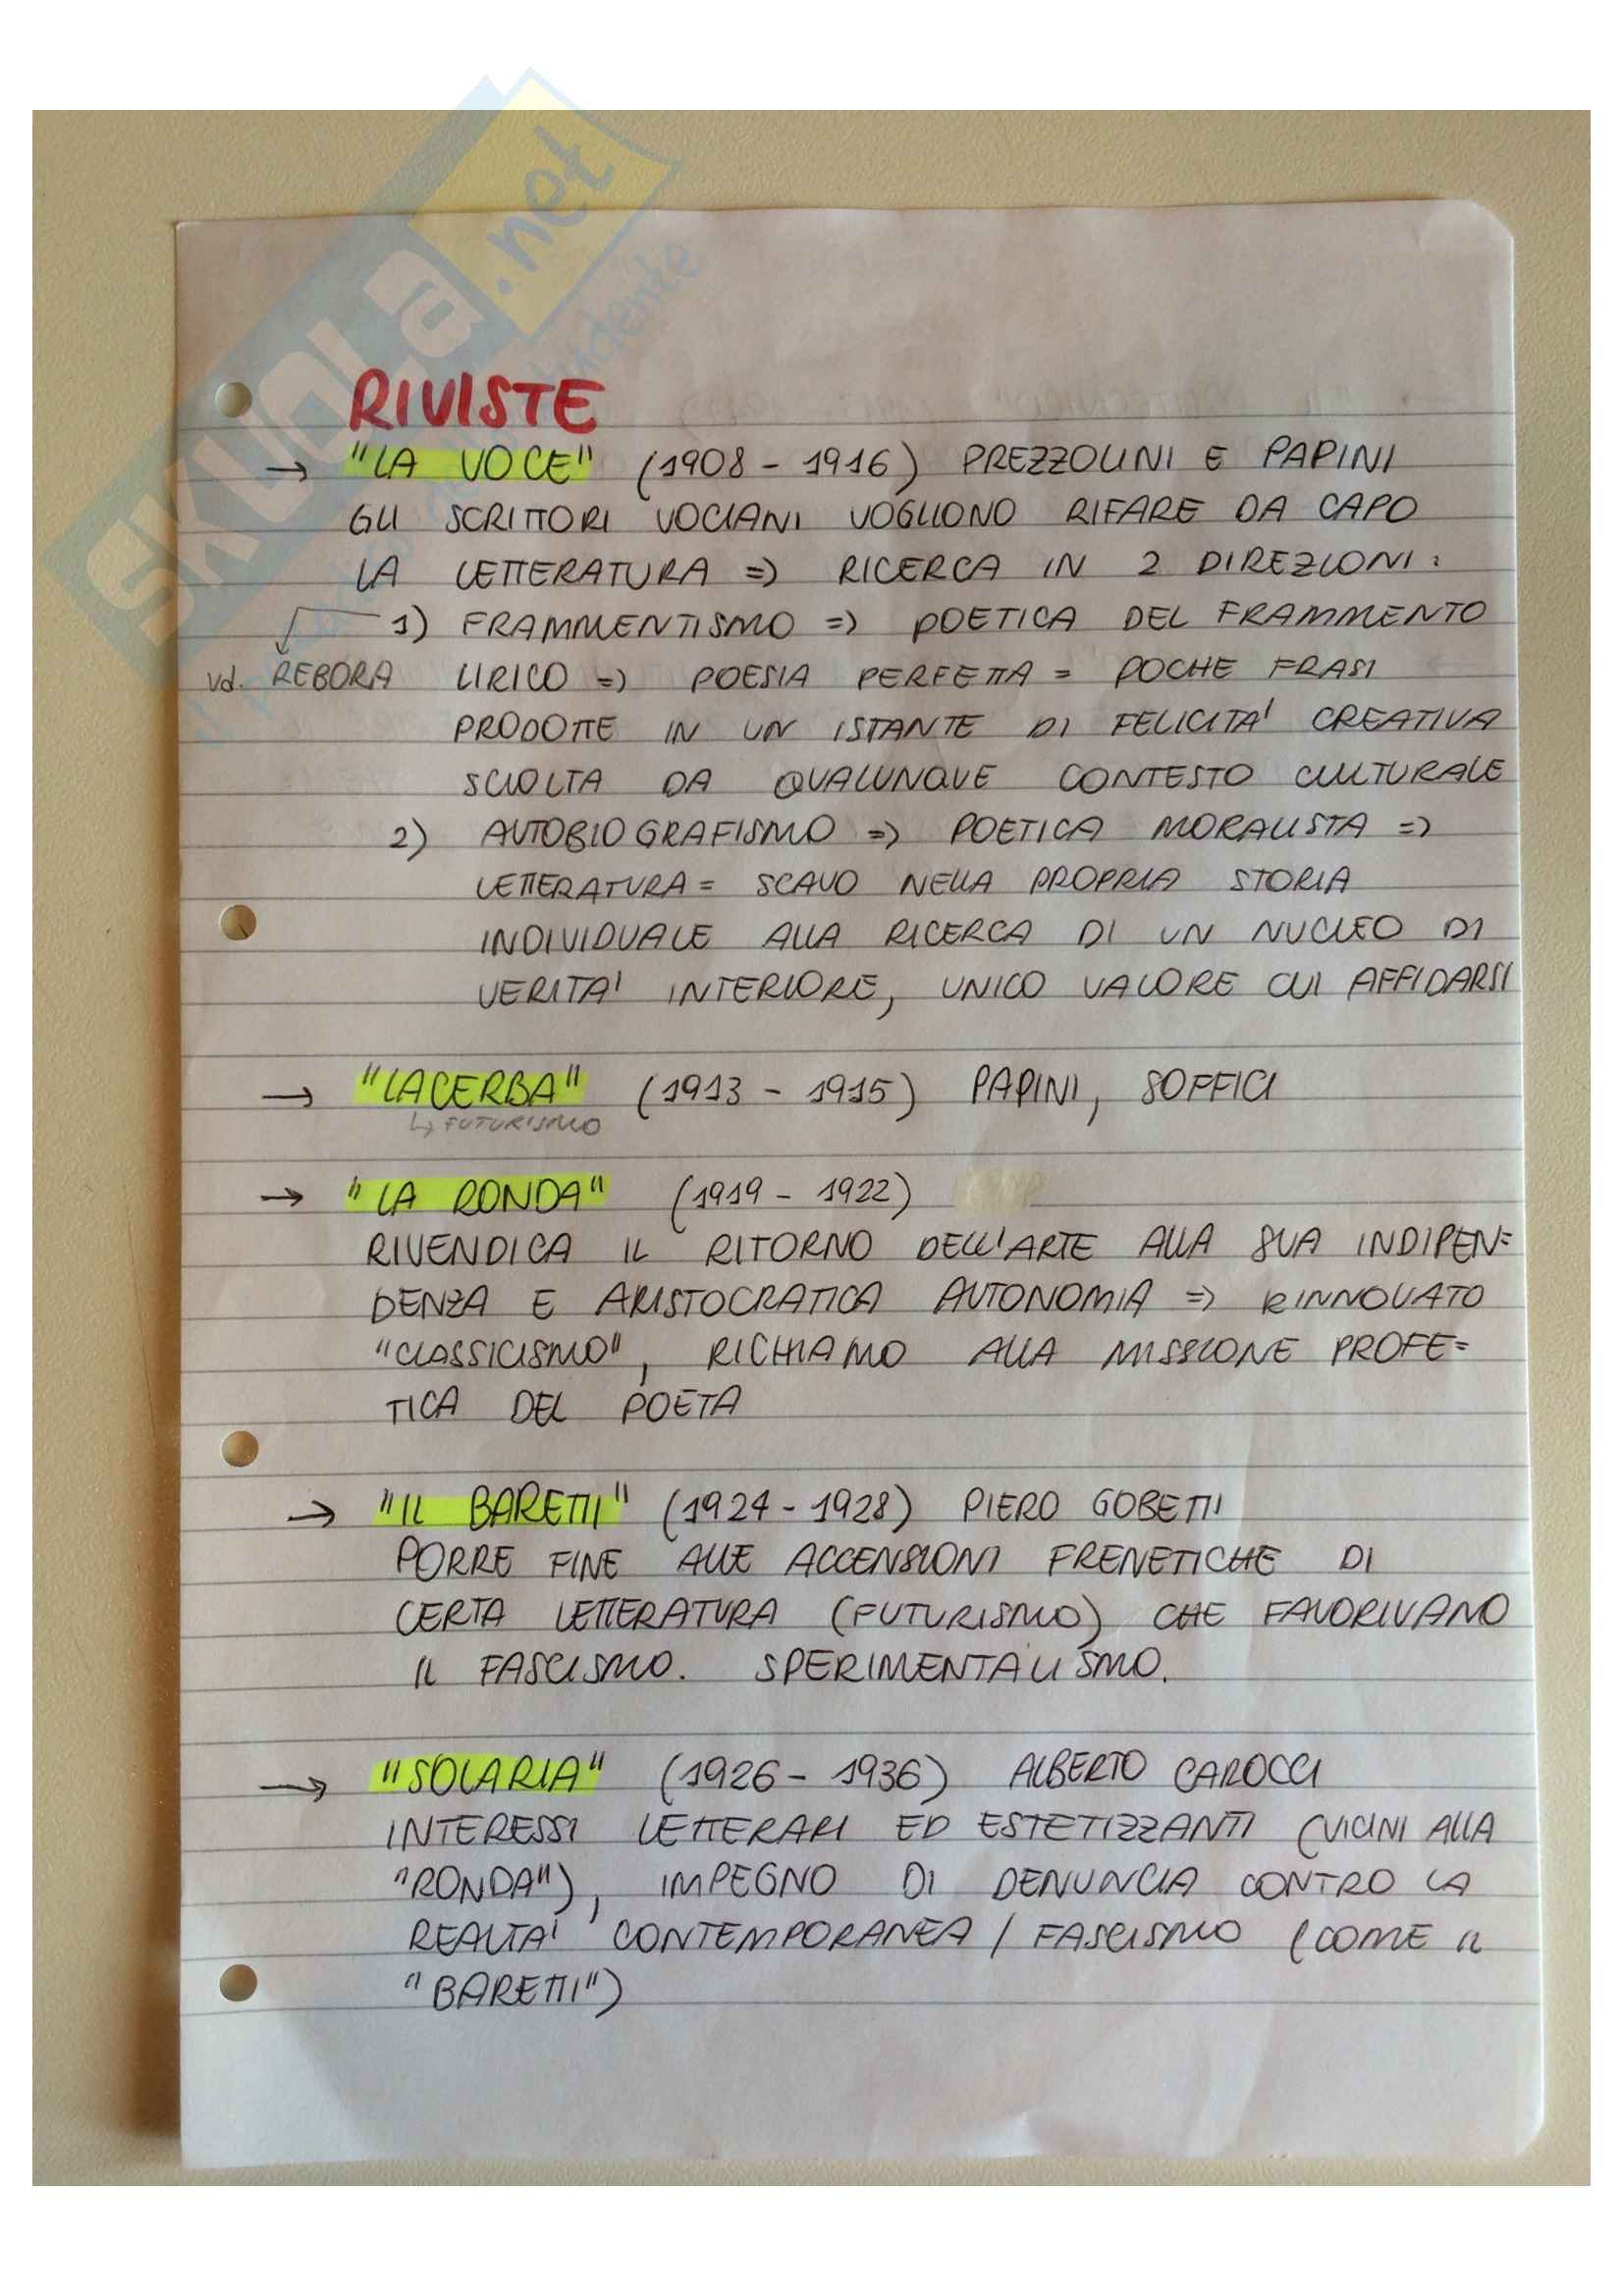 SKUOLA.net
RIVISTE
→ "LA VOCE" (1908 - 1916) PREZZOLINI E PAPINI
GLI SCRITTORI VOCIANI VOGLIONO RIFARE DA CAPO
LA LETTERATURA => RICERCA IN 2 DIREZIONI:
1) FRAMMENTISMO => POETICA DEL FRAMMENTO
vd. REBORA LIRICO => POESIA PERFETTA = POCHE FRASI
PRODOTTE IN UN ISTANTE DI FELICITA' CREATIVA
SCIOLTA DA QUALUNQUE CONTESTO CULTURALE
2) AUTOBIOGRAFISMO => POETICA MORALISTA =>
LETTERATURA = SCAVO NELLA PROPRIA STORIA
INDIVIDUALE ALLA RICERCA DI UN NUCLEO DI
VERITA' INTERIORE, UNICO VALORE CUI AFFIDARSI
→ "LACERBA" (1913 - 1915) PAPINI, SOFFICI
↳ FUTURISMO
→ "LA RONDA" (1919 - 1922)
RIVENDICA IL RITORNO DELL'ARTE ALLA SUA INDIPEN=
DENZA E ARISTOCRATICA AUTONOMIA => RINNOVATO
"CLASSICISMO", RICHIAMO ALLA MISSIONE PROFE=
TICA DEL POETA
→ "IL BARETTI" (1924 - 1928) PIERO GOBETTI
PORRE FINE ALLE ACCENSIONI FRENETICHE DI
CERTA LETTERATURA (FUTURISMO) CHE FAVORIVANO
IL FASCISMO. SPERIMENTALISMO.
→ "SOLARIA" (1926 - 1936) ALBERTO CAROCCI
INTERESSI LETTERARI ED ESTETIZZANTI (VICINI ALLA
"RONDA"), IMPEGNO DI DENUNCIA CONTRO LA
REALTA' CONTEMPORANEA / FASCISMO (COME IL
"BARETTI")